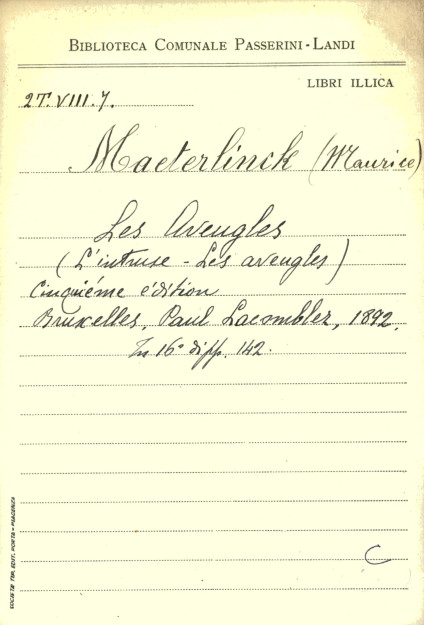 BIBLIOTECA COMUNALE PASSERINI-LANDI
LIBRI ILLICA
2T. VIII. 7.
Maeterlinck (Maurice)
Les Aveugles
(L'intruse - Les aveugles)
Cinquiéme édition
Bruxelles, Paul Lacomblez, 1892.
In 16° di pp. 142.
C